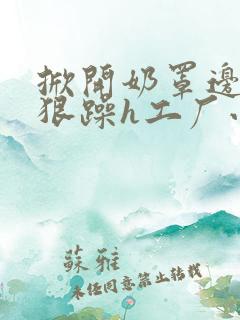 掀開奶罩邊
狠躁h工厂、
蘇雅
未经同意禁止转载